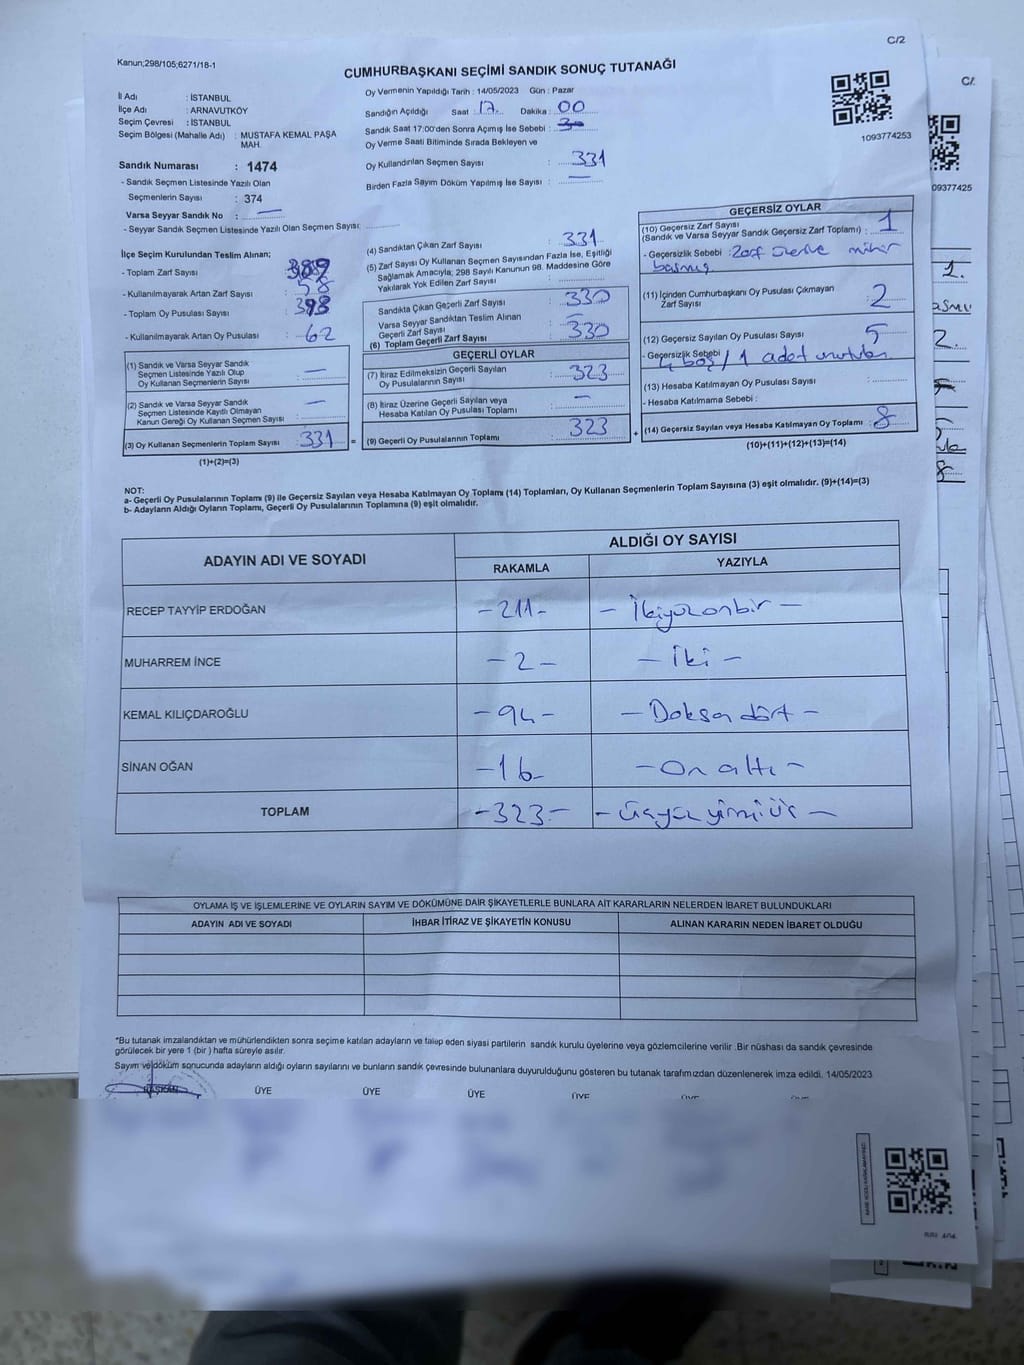 C/2
Kanun;298/105;6271/18-1
CUMHURBAŞKANI SEÇİMİ SANDIK SONUÇ TUTANAĞI
İl Adı : İSTANBUL
İlçe Adı : ARNAVUTKÖY
Seçim Çevresi : İSTANBUL
Seçim Bölgesi (Mahalle Adı) : MUSTAFA KEMAL PAŞA
MAH.
Sandık Numarası : 1474
- Sandık Seçmen Listesinde Yazılı Olan
Seçmenlerin Sayısı : 374
Varsa Seyyar Sandık No : —
- Seyyar Sandık Seçmen Listesinde Yazılı Olan Seçmen Sayısı:
Oy Vermenin Yapıldığı Tarih : 14/05/2023 Gün : Pazar
Sandığın Açıldığı Saat : 17. Dakika : 00
Sandık Saat 17:00'den Sonra Açımış İse Sebebi :
Oy Verme Saati Bitiminde Sırada Bekleyen ve
Oy Kullandırılan Seçmen Sayısı : 331
Birden Fazla Sayım Döküm Yapılmış İse Sayısı : —
1093774253
İlçe Seçim Kurulundan Teslim Alınan;
- Toplam Zarf Sayısı : 389
- Kullanılmayarak Artan Zarf Sayısı : 58
- Toplam Oy Pusulası Sayısı : 393
- Kullanılmayarak Artan Oy Pusulası : 62
(1) Sandık ve Varsa Seyyar Sandık
Seçmen Listesinde Yazılı Olup
Oy Kullanan Seçmenlerin Sayısı : —
(2) Sandık ve Varsa Seyyar Sandık
Seçmen Listesinde Kayıtlı Olmayan
Kanun Gereği Oy Kullanan Seçmen Sayısı : —
(3) Oy Kullanan Seçmenlerin Toplam Sayısı : 331 =
(1)+(2)=(3)
(4) Sandıktan Çıkan Zarf Sayısı : 331
(5) Zarf Sayısı Oy Kullanan Seçmen Sayısından Fazla İse, Eşitliği
Sağlamak Amacıyla; 298 Sayılı Kanunun 98. Maddesine Göre
Yakılarak Yok Edilen Zarf Sayısı :
Sandıkta Çıkan Geçerli Zarf Sayısı : 330
Varsa Seyyar Sandıktan Teslim Alınan
Geçerli Zarf Sayısı : —
(6) Toplam Geçerli Zarf Sayısı : 330
GEÇERLİ OYLAR
(7) İtiraz Edilmeksizin Geçerli Sayılan
Oy Pusulalarının Sayısı : 323
(8) İtiraz Üzerine Geçerli Sayılan veya
Hesaba Katılan Oy Pusulası Toplamı : —
(9) Geçerli Oy Pusulalarının Toplamı : 323 +
GEÇERSİZ OYLAR
(10) Geçersiz Zarf Sayısı
(Sandık ve Varsa Seyyar Sandık Geçersiz Zarf Toplamı) : 1
- Geçersizlik Sebebi : Zarf üzerine mühür
basmış
(11) İçinden Cumhurbaşkanı Oy Pusulası Çıkmayan
Zarf Sayısı : 2
(12) Geçersiz Sayılan Oy Pusulası Sayısı : 5
- Geçersizlik Sebebi : 4 boş / 1 adet
(13) Hesaba Katılmayan Oy Pusulası Sayısı :
- Hesaba Katılmama Sebebi :
(14) Geçersiz Sayılan veya Hesaba Katılmayan Oy Toplamı : 8
(10)+(11)+(12)+(13)=(14)
NOT:
a- Geçerli Oy Pusulalarının Toplamı (9) ile Geçersiz Sayılan veya Hesaba Katılmayan Oy Toplamı (14) Toplamları, Oy Kullanan Seçmenlerin Toplam Sayısına (3) eşit olmalıdır. (9)+(14)=(3)
b- Adayların Aldığı Oyların Toplamı, Geçerli Oy Pusulalarının Toplamına (9) eşit olmalıdır.
ADAYIN ADI VE SOYADI ALDIĞI OY SAYISI
RAKAMLA YAZIYLA
RECEP TAYYİP ERDOĞAN -211- - İkiyüzonbir -
MUHARREM İNCE -2- - İki -
KEMAL KILIÇDAROĞLU -94- - Doksan dört -
SİNAN OĞAN -16- - On altı -
TOPLAM -323- - üçyüz yirmiüç -
OYLAMA İŞ VE İŞLEMLERİNE VE OYLARIN SAYIM VE DÖKÜMÜNE DAİR ŞİKAYETLERLE BUNLARA AİT KARARLARIN NELERDEN İBARET BULUNDUKLARI
ADAYIN ADI VE SOYADI İHBAR İTİRAZ VE ŞİKAYETİN KONUSU ALINAN KARARIN NEDEN İBARET OLDUĞU
*Bu tutanak imzalandıktan ve mühürlendikten sonra seçime katılan adayların ve talep eden siyasi partilerin sandık kurulu üyelerine veya gözlemcilerine verilir .Bir nüshası da sandık çevresinde
görülecek bir yere 1 (bir ) hafta süreyle asılır.
Sayım ve döküm sonucunda adayların aldığı oyların sayılarını ve bunların sandık çevresinde bulunanlara duyurulduğunu gösteren bu tutanak tarafımızdan düzenlenerek imza edildi. 14/05/2023
BAŞKAN ÜYE ÜYE ÜYE ÜYE ÜYE ÜYE